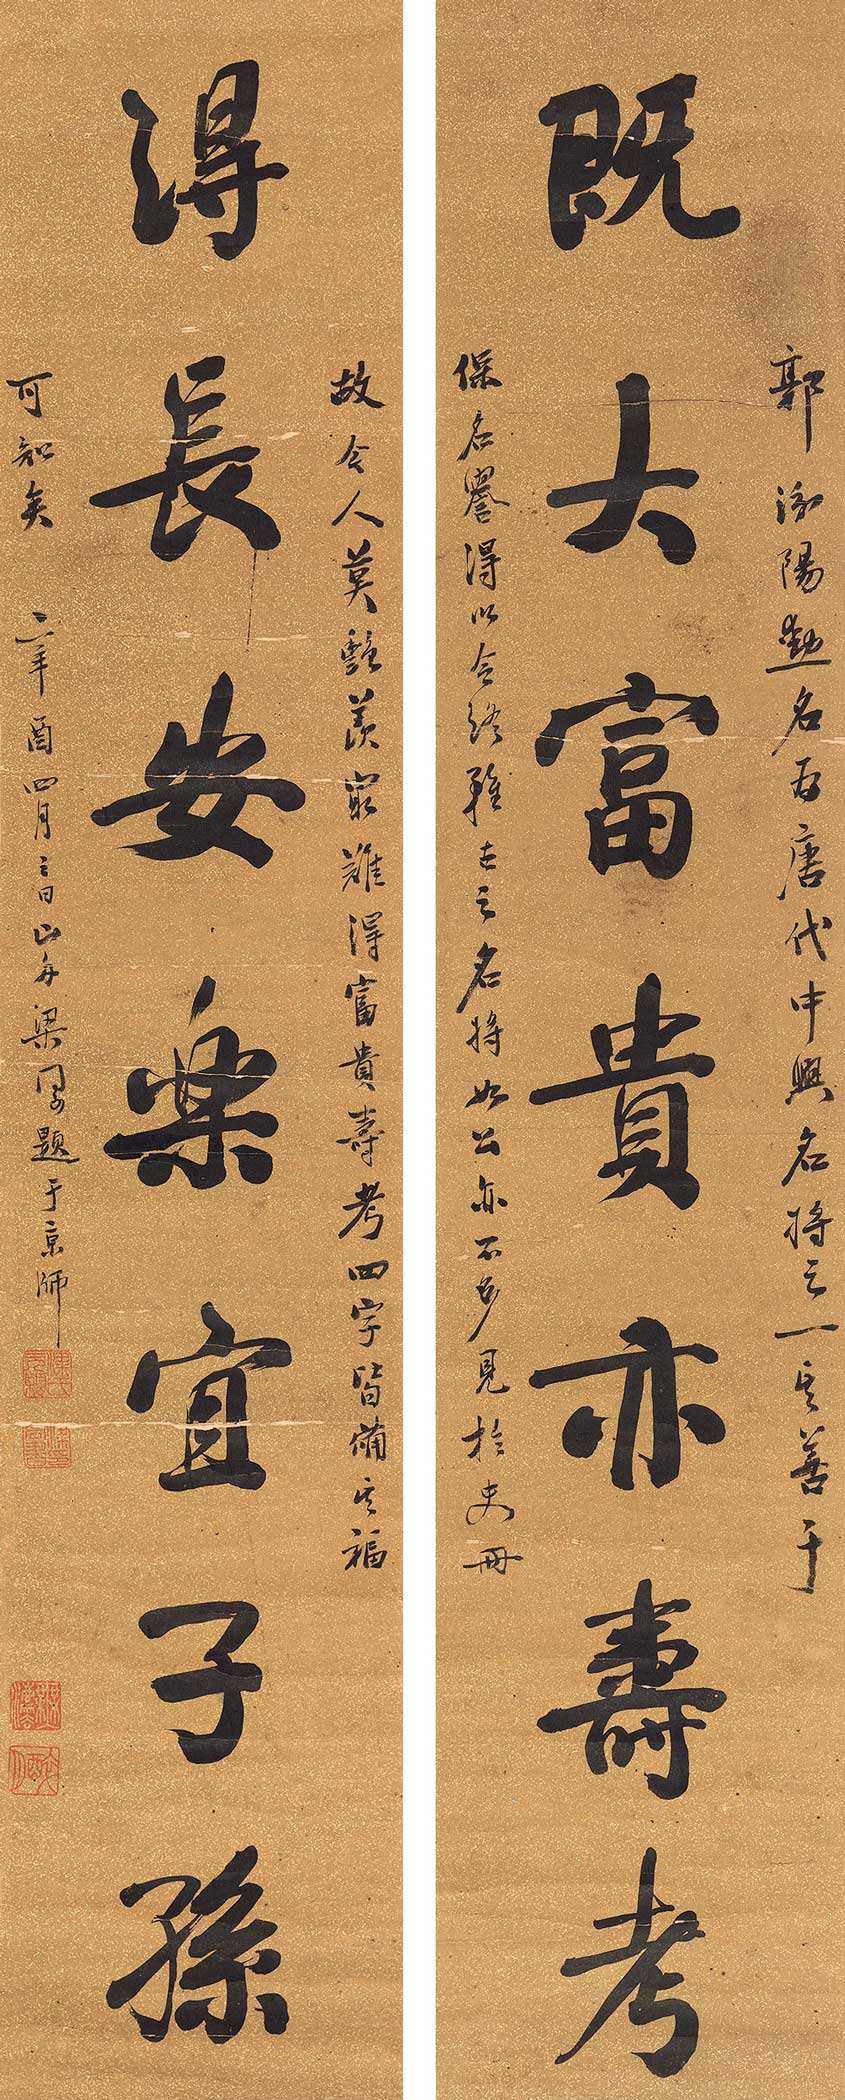 既大富貴亦壽考
郭汾陽勳名為唐代中興名將之一其善于
保名譽得以令終雖古之名將如公亦不多見於史冊
得長安樂宜子孫
故令人莫豔羨最難得富貴壽考四字皆備其福
可知矣 辛酉四月三日山舟梁同書題于京師